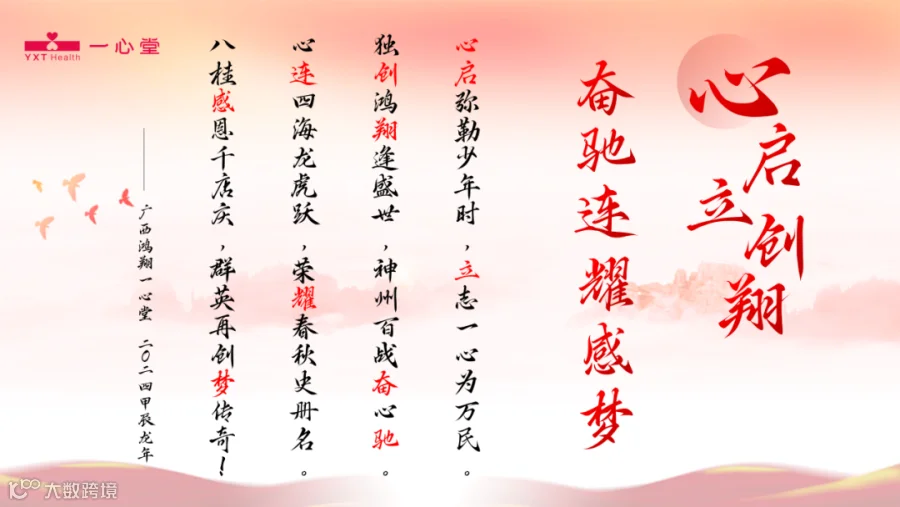 心启立创翔
奋驰连耀感梦
心启弥勒少年时，立志一心为万民。
独创鸿翔逢盛世，神州百战奋心驰。
心连四海龙虎跃，荣耀春秋史册名。
八桂感恩千店庆，群英再创梦传奇！
——广西鸿翔一心堂 二〇二四甲辰龙年
YXT Health 一心堂
大数跨境